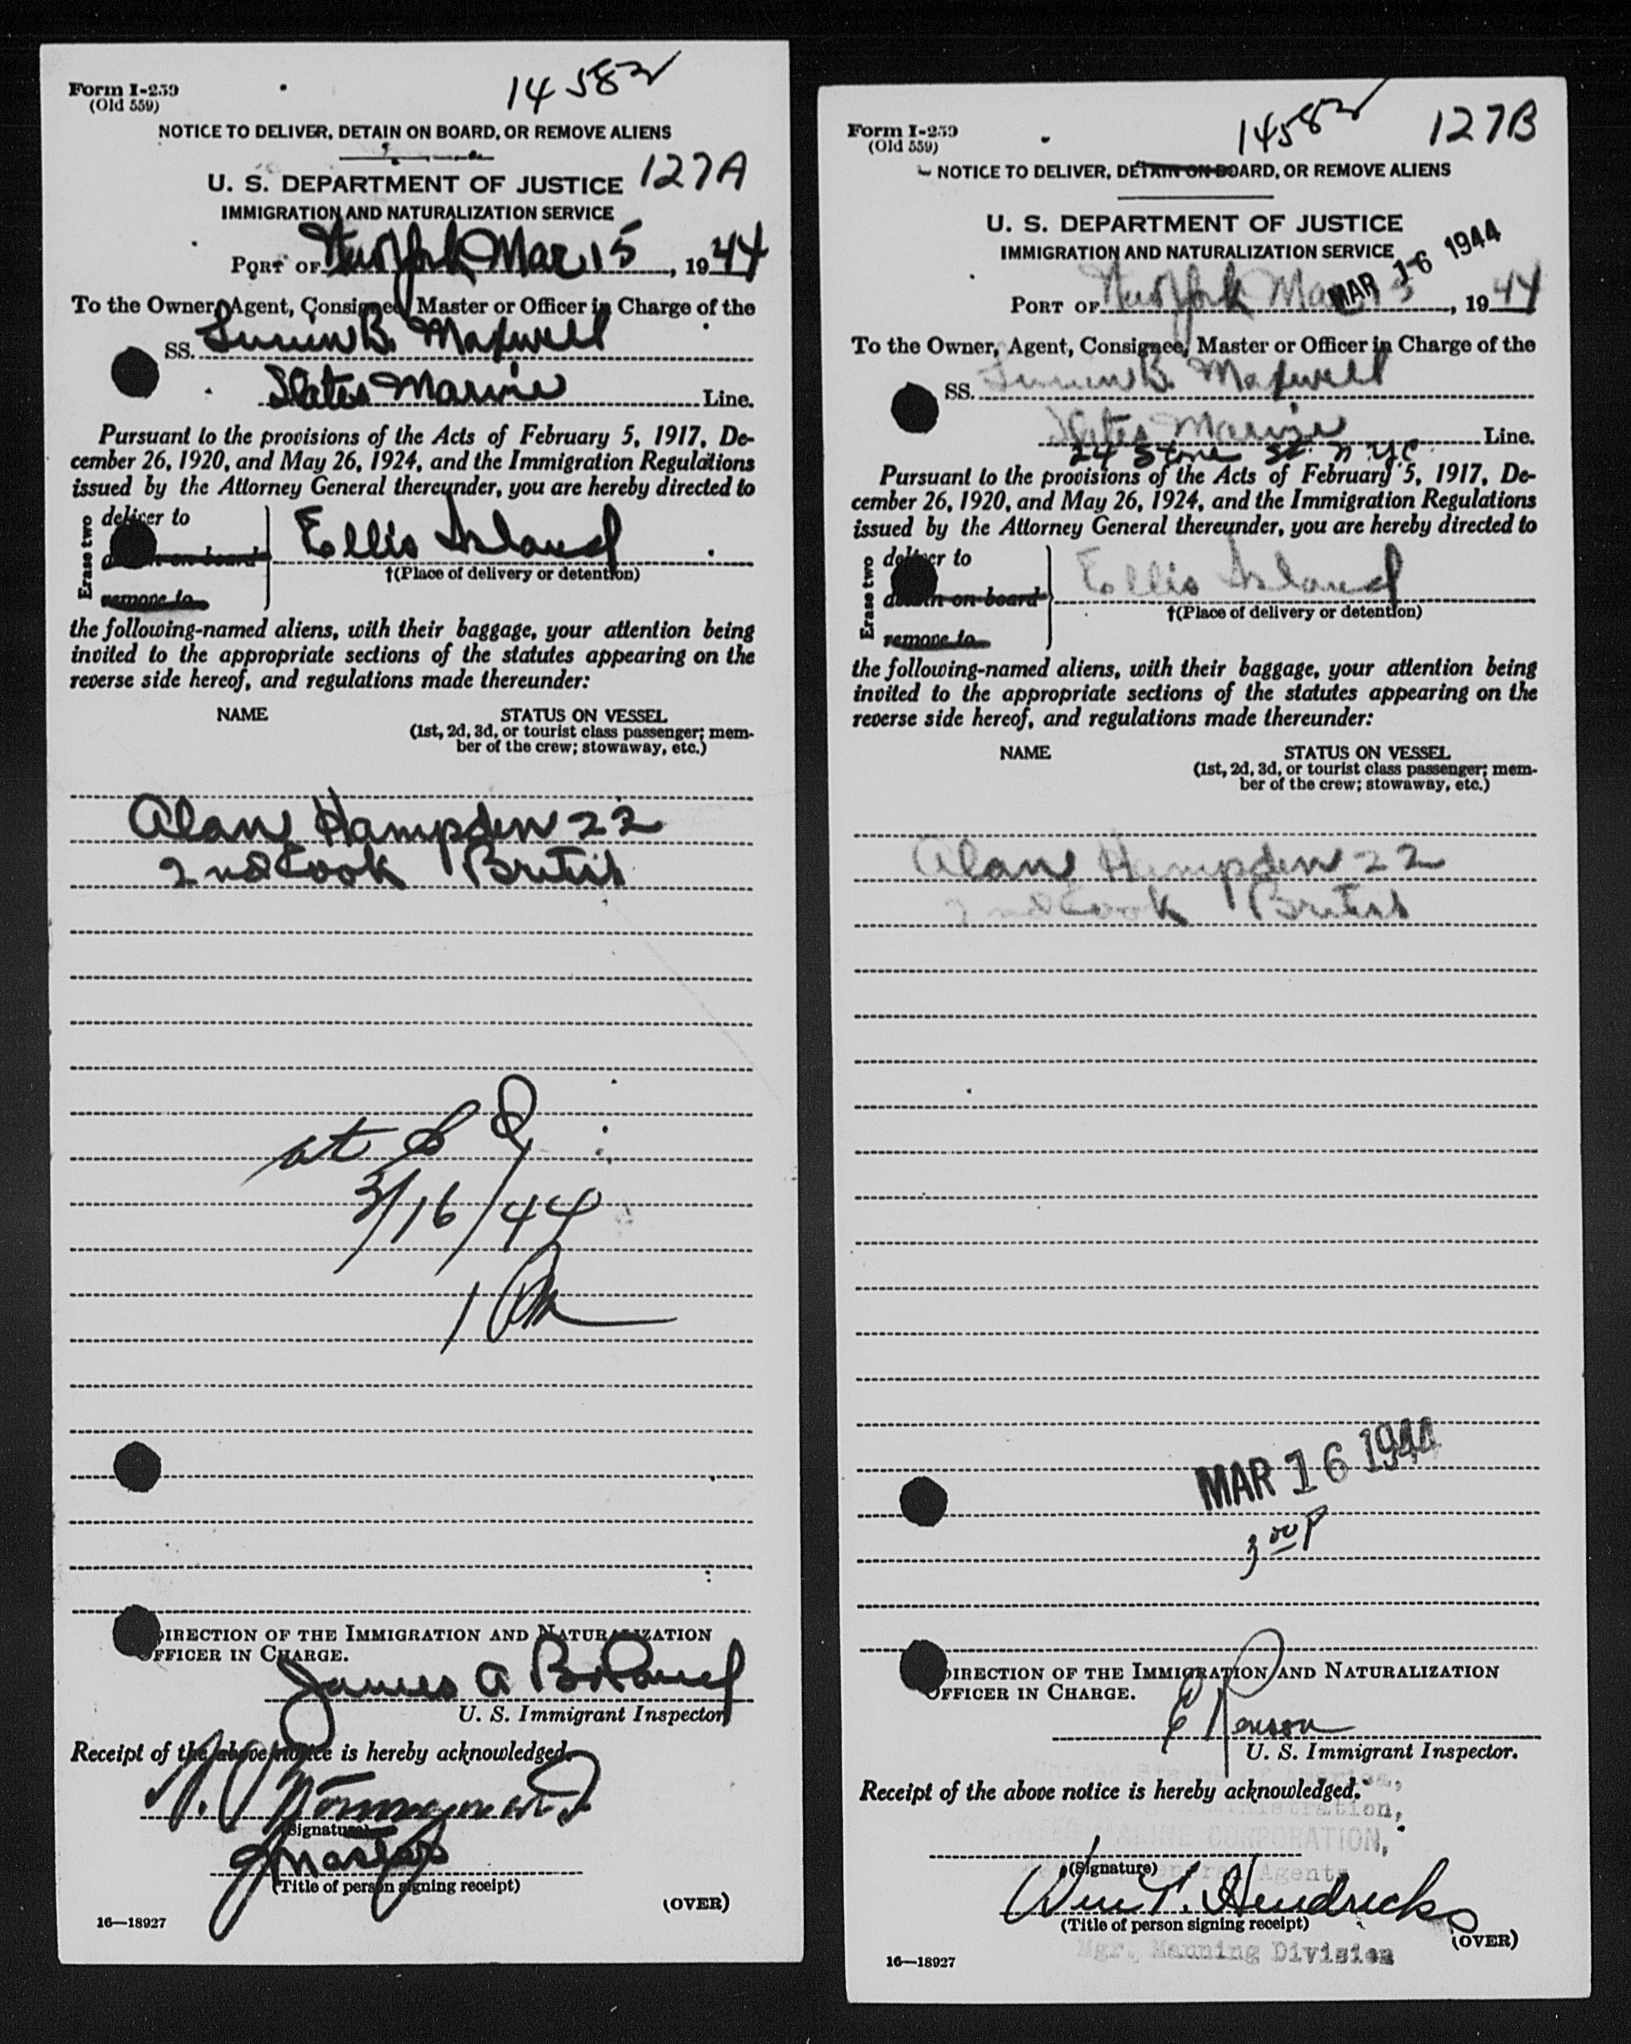 Form I-259
(Old 559)
14582
NOTICE TO DELIVER, DETAIN ON BOARD, OR REMOVE ALIENS
127A
U. S. DEPARTMENT OF JUSTICE
IMMIGRATION AND NATURALIZATION SERVICE
PORT OF New York Mar 15, 1944
To the Owner, Agent, Consignee, Master or Officer in Charge of the
SS. B. Maxwell
States Marine Line.
Pursuant to the provisions of the Acts of February 5, 1917, De-
cember 26, 1920, and May 26, 1924, and the Immigration Regulations
issued by the Attorney General thereunder, you are hereby directed to
Erase two
deliver to
detain on board
remove to
Ellis Island
†(Place of delivery or detention)
the following-named aliens, with their baggage, your attention being
invited to the appropriate sections of the statutes appearing on the
reverse side hereof, and regulations made thereunder:
NAME STATUS ON VESSEL
(1st, 2d, 3d, or tourist class passenger; mem-
ber of the crew; stowaway, etc.)
Alan Hampden 22
2nd Cook British
at
3/16/44
1 PM
DIRECTION OF THE IMMIGRATION AND NATURALIZATION
OFFICER IN CHARGE.
James A
U. S. Immigrant Inspector
Receipt of the above notice is hereby acknowledged.
(Signature)
Master
(Title of person signing receipt)
(OVER)
16—18927
Form I-259
(Old 559)
14582
127B
NOTICE TO DELIVER, DETAIN ON BOARD, OR REMOVE ALIENS
U. S. DEPARTMENT OF JUSTICE
IMMIGRATION AND NATURALIZATION SERVICE
MAR 16 1944
PORT OF New York Mar 15, 1944
To the Owner, Agent, Consignee, Master or Officer in Charge of the
SS. B. Maxwell
States Marine Line.
24 Stone St. N.Y.C.
Pursuant to the provisions of the Acts of February 5, 1917, De-
cember 26, 1920, and May 26, 1924, and the Immigration Regulations
issued by the Attorney General thereunder, you are hereby directed to
Erase two
deliver to
detain on board
remove to
Ellis Island
†(Place of delivery or detention)
the following-named aliens, with their baggage, your attention being
invited to the appropriate sections of the statutes appearing on the
reverse side hereof, and regulations made thereunder:
NAME STATUS ON VESSEL
(1st, 2d, 3d, or tourist class passenger; mem-
ber of the crew; stowaway, etc.)
Alan Hampden 22
2nd Cook British
MAR 16 1944
3 00 P
DIRECTION OF THE IMMIGRATION AND NATURALIZATION
OFFICER IN CHARGE.
U. S. Immigrant Inspector.
United States of America,
Receipt of the above notice is hereby acknowledged.
MARINE CORPORATION,
General Agents
(Signature)
Wm T. Hendricks
(Title of person signing receipt)
(OVER)
Mgr. Manning Division
16—18927